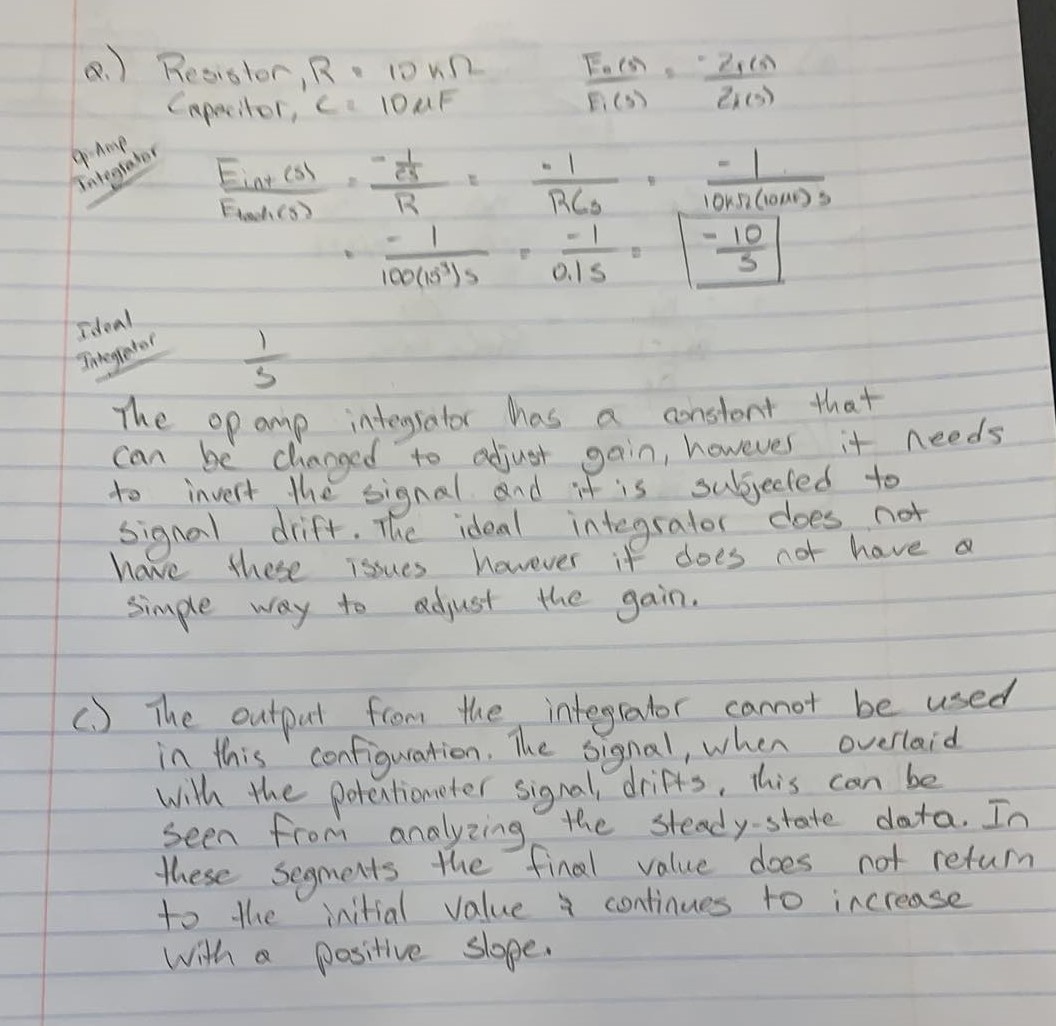 a.) Resistor, R = 10 kΩ
Eo(s)/Ei(s) = -Zf(s)/Zi(s)
Capacitor, C = 10 μF
Op-Amp Integrator
Eint(s)/Etach(s) = -1/Cs / R = -1/RCs = -1/10kΩ(10μF)s
= -1/100(10⁻³)s = -1/0.1s = -10/s
Ideal Integrator
1/s
The op amp integrator has a constant that
can be changed to adjust gain, however it needs
to invert the signal and it is subjected to
signal drift. The ideal integrator does not
have these issues however it does not have a
simple way to adjust the gain.
c.) The output from the integrator cannot be used
in this configuration. The signal, when overlaid
with the potentiometer signal, drifts, this can be
seen from analyzing the steady-state data. In
these segments the final value does not return
to the initial value & continues to increase
with a positive slope.